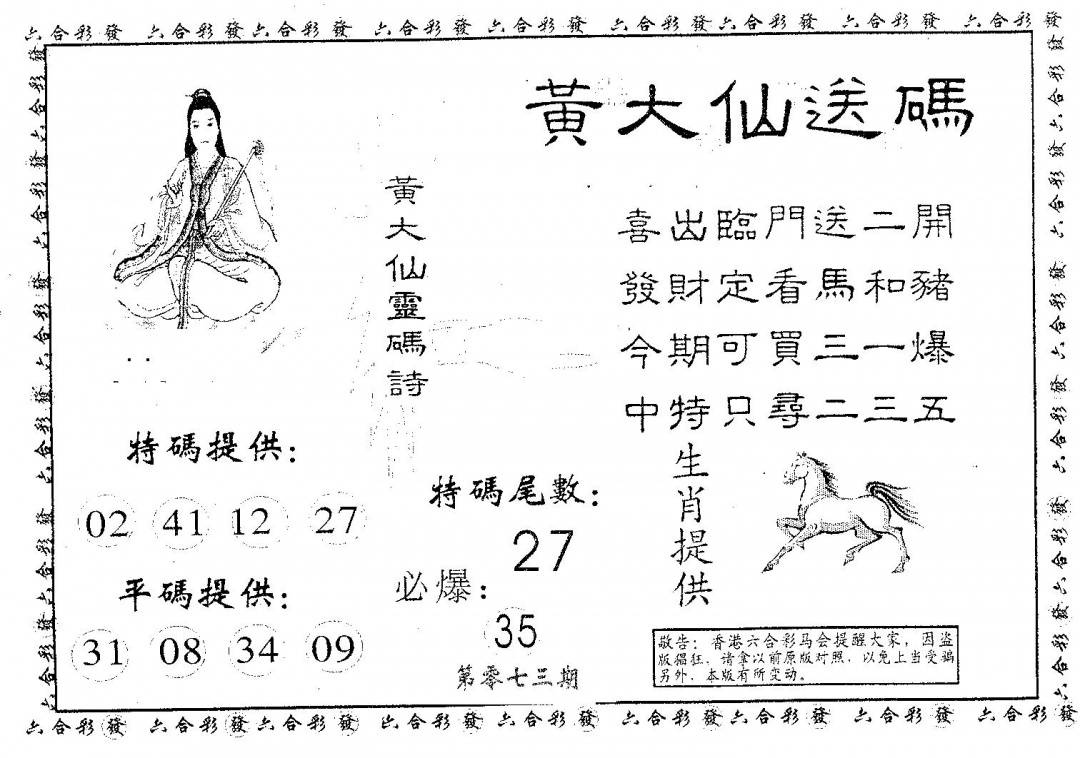 六合彩發 六合彩發 六合彩發 六合彩發 六合彩發 六合彩發 六合彩發 六合彩發 六合彩發
黃大仙送碼
黃大仙靈碼詩
喜出臨門送二開
發財定看馬和豬
今期可買三一爆
中特只尋二三五
特碼提供：
02 41 12 27
平碼提供：
31 08 34 09
特碼尾數：
27
必爆：
35
第零七三期
生肖提供
敬告：香港六合彩马会提醒大家，因盗
版猖狂，请拿以前原版对照，以免上当受骗
另外，本版有所变动。
六合彩發 六合彩發 六合彩發 六合彩發 六合彩發 六合彩發 六合彩發 六合彩發 六合彩發